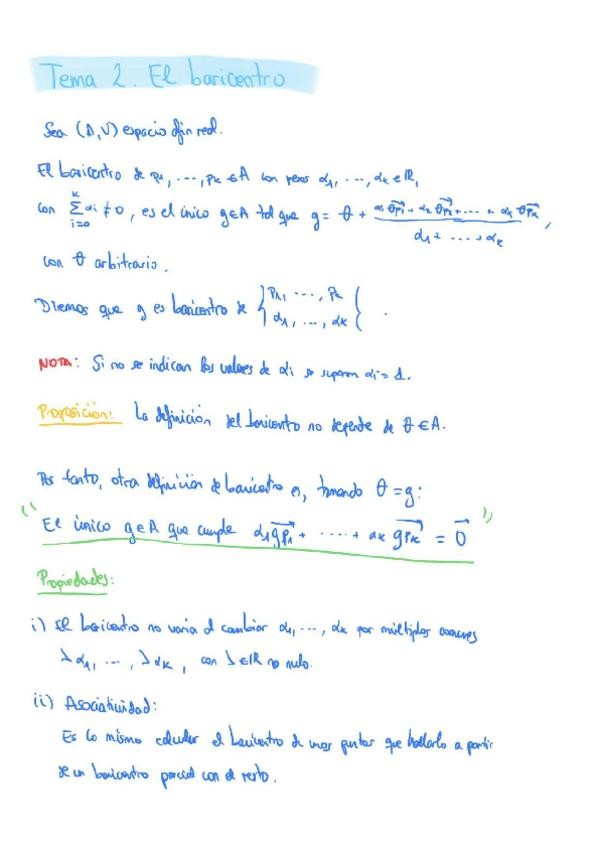 Tema 2. El baricentro
Sea (A,V) espacio afín real.
El baricentro de p₁, ..., pₖ ∈ A con pesos α₁, ..., αₖ ∈ ℝ,
con ∑_{i=0}^{k} αi ≠ 0, es el único g∈A tal que g = θ + (α₁ θp₁⃗ + α₂ θp₂⃗ + ... + αₖ θpₖ⃗)/(α₁ + ... + αₖ),
con θ arbitrario.
Diremos que g es baricentro de {p₁, ..., pₖ
α₁, ..., αₖ{ .
NOTA: Si no se indican los valores de αi se suponen αi = 1.
Proposición: La definición del baricentro no depende de θ ∈ A.
Por tanto, otra definición de baricentro es, tomando θ = g:
"El único g∈A que cumple α₁gp₁⃗ + ..... + αₖ gpₖ⃗ = 0⃗"
Propiedades:
i) El baricentro no varía al cambiar α₁, ..., αₖ por múltiplos comunes
λα₁, ..., λαₖ, con λ∈ℝ no nulo.
ii) Asociatividad:
Es lo mismo calcular el baricentro de unos puntos que hallarlo a partir
de un baricentro parcial con el resto.